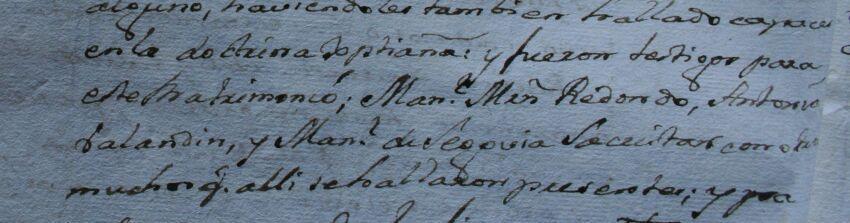 alguno, haviendoles tambien hallado capaces
en la doctrina xptiana: y fueron testigos para
este Matrimonio; Man.l Mrn Redondo, Antonio
Galandin, y Man.l de Segovia Sacristan con otros
muchos q.e alli se hallaron presentes; y pa